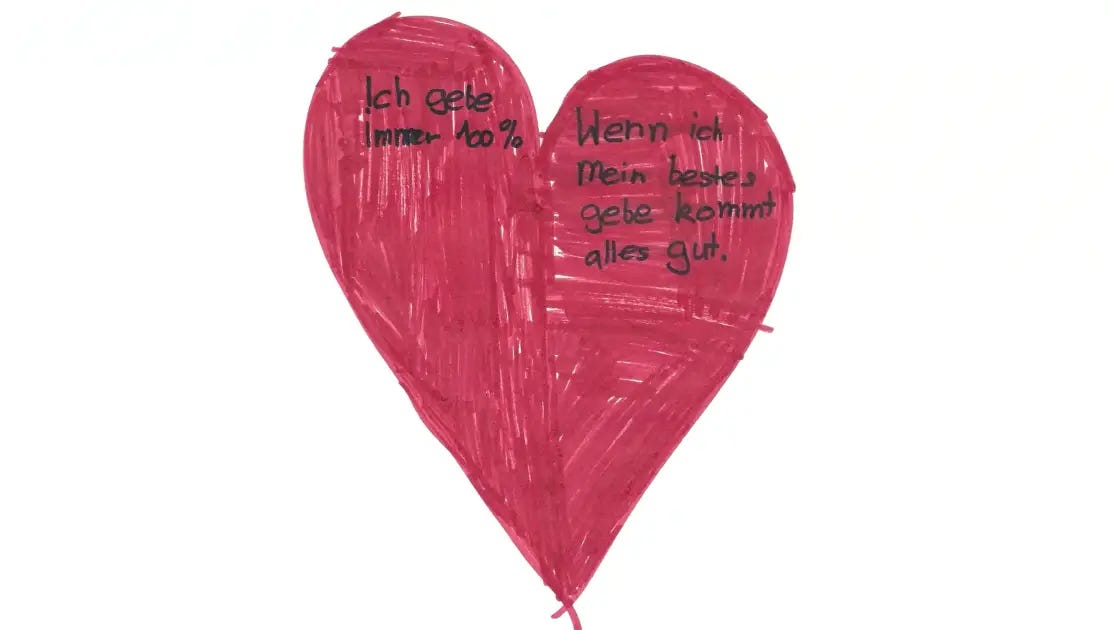 Ich gebe
Immer 100%
Wenn ich
Mein bestes
gebe kommt
alles gut.